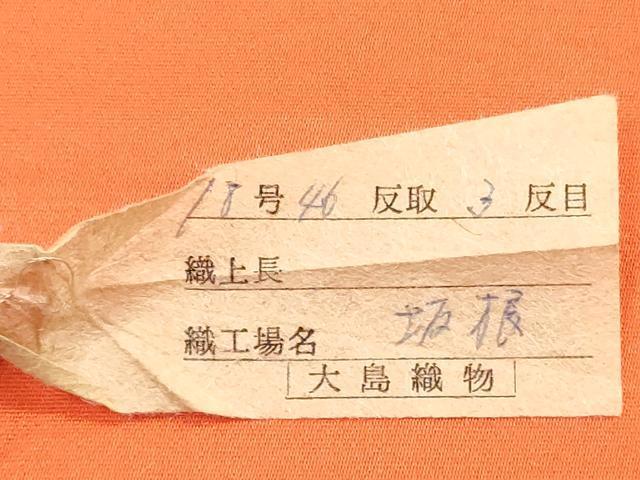 18号 46 反取 3 反目
織上長
織工場名 坂根
大島織物